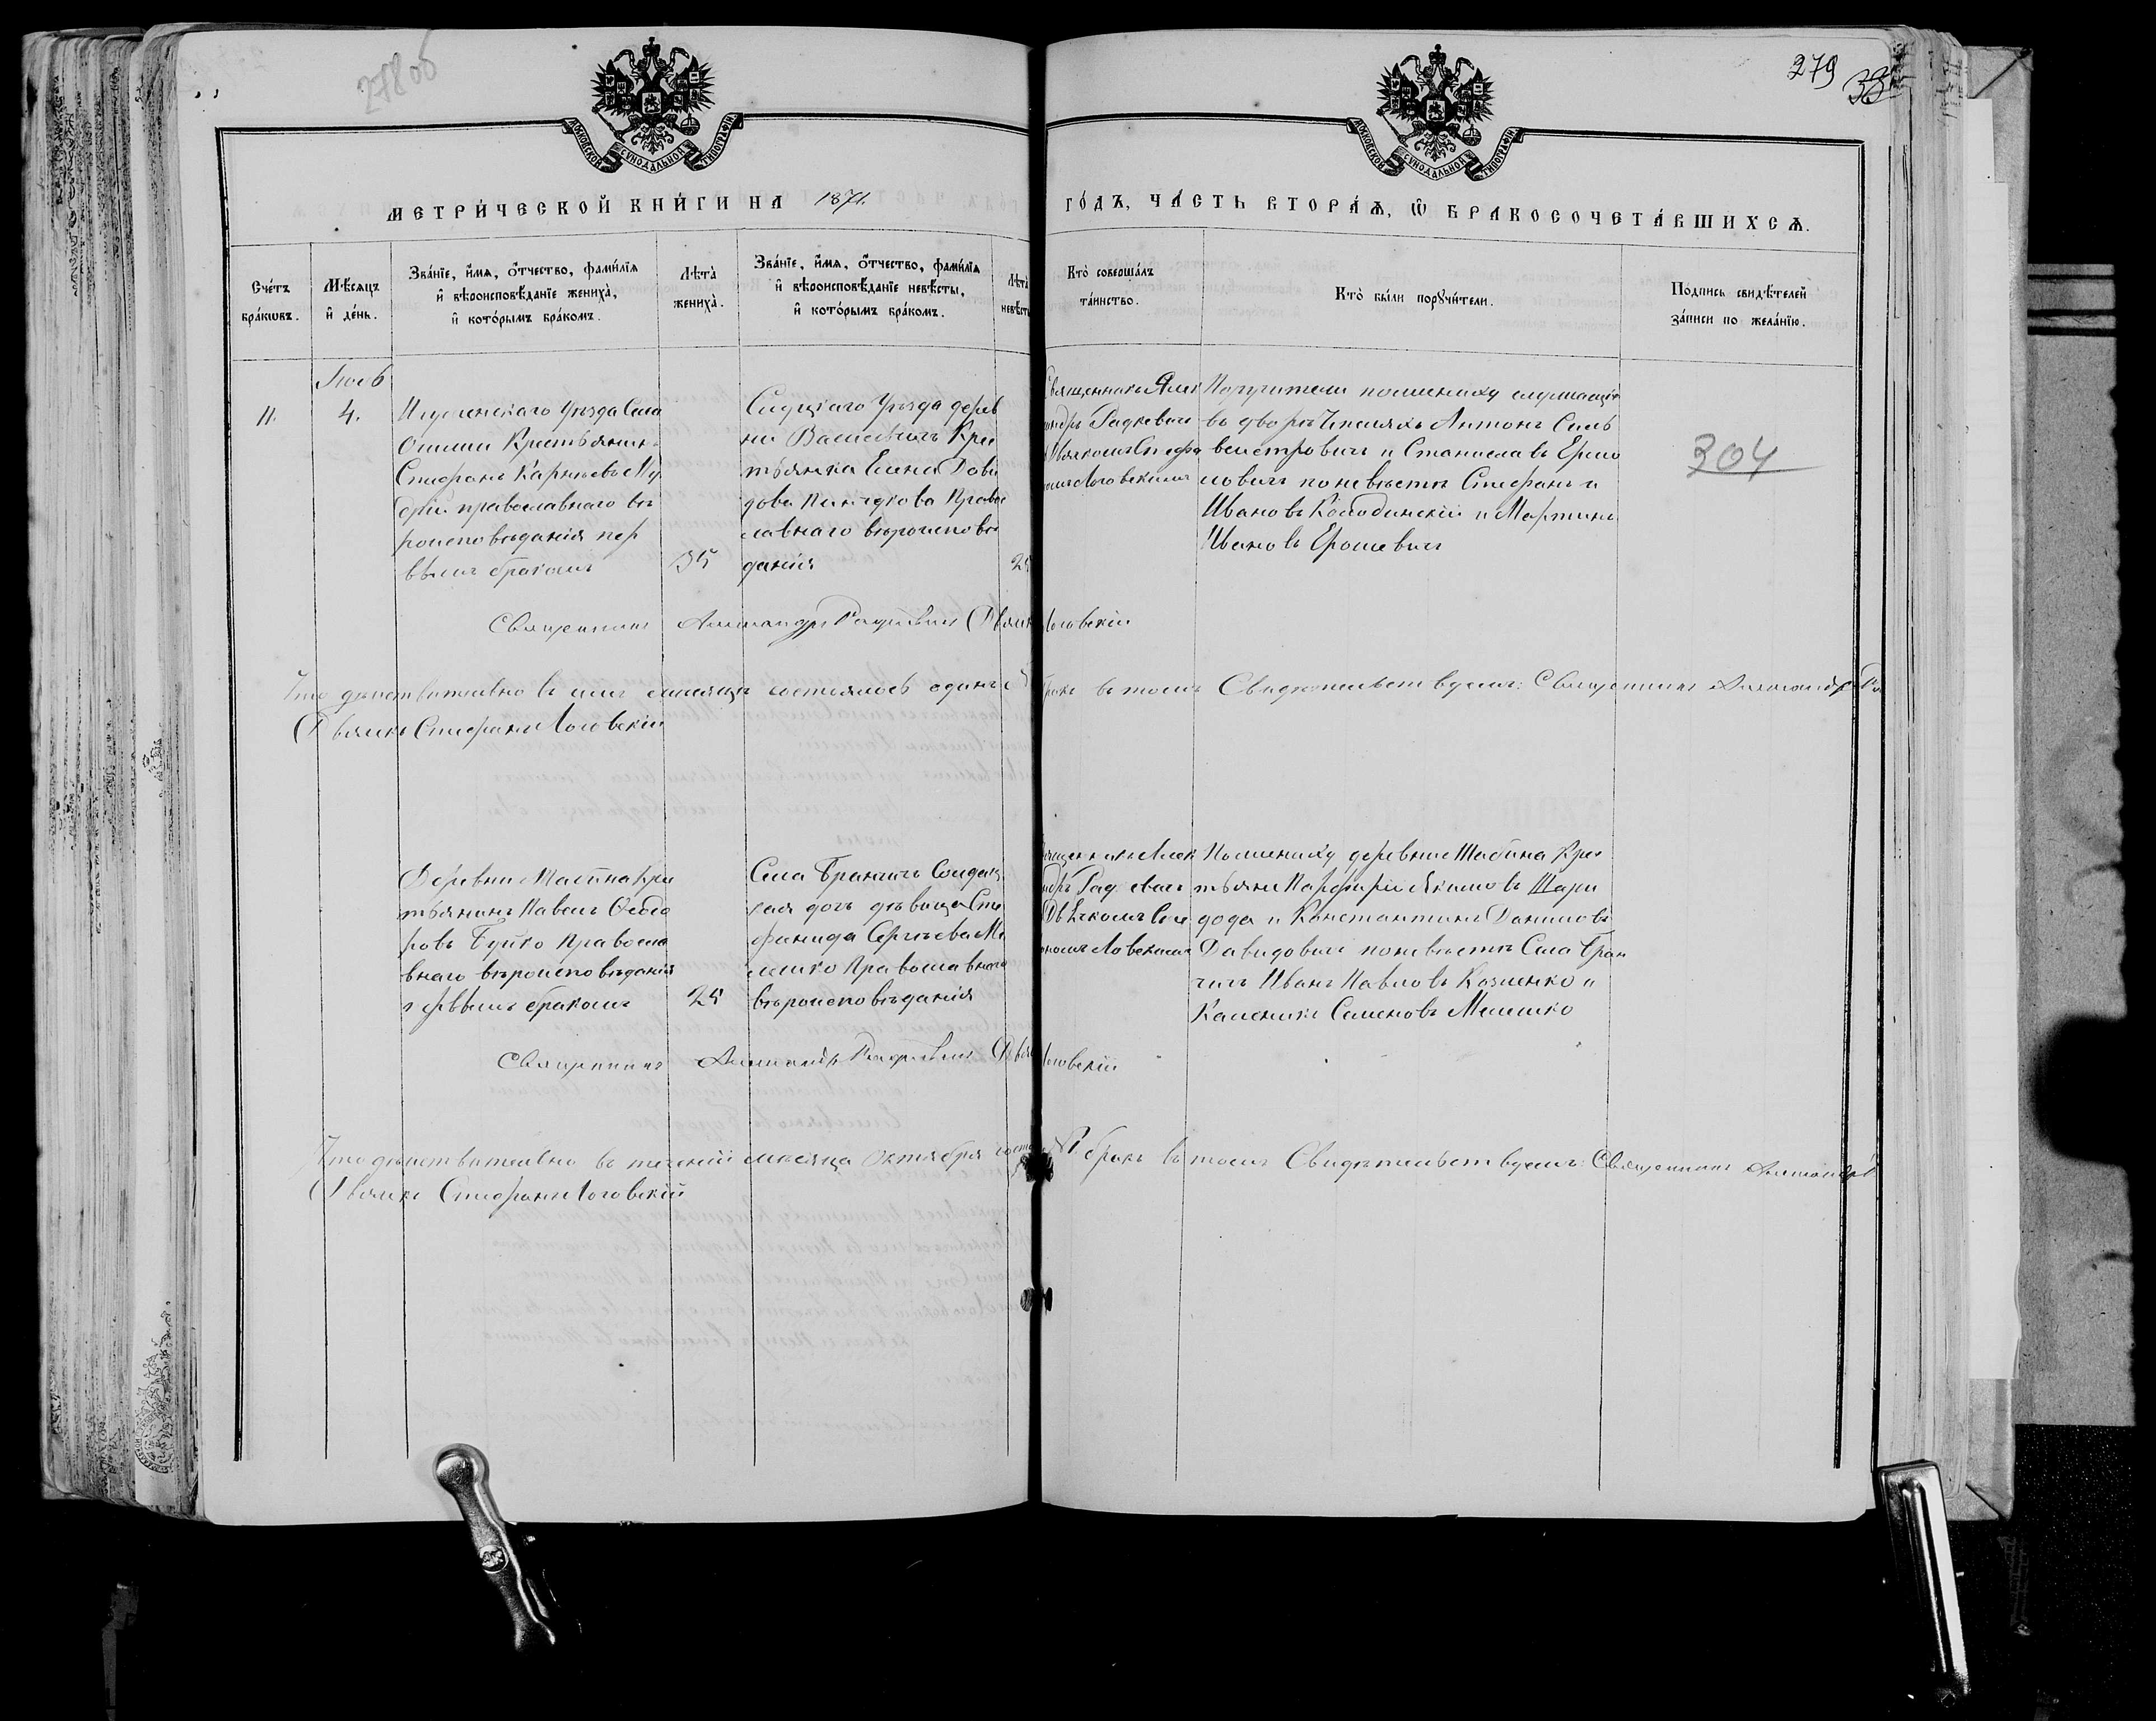 278об
279
33
МОСКОВСКОЙ СѴНОДАЛЬНОЙ ТИПОГРАФІИ.
МОСКОВСКОЙ СѴНОДАЛЬНОЙ ТИПОГРАФІИ.
МЕТРИ́ЧЕСКОЙ КНИ́ГИ НА 1871.
ГО́ДЪ, ЧА́СТЬ ВТОРА́Ѧ, Ѿ БРАКОСОЧЕТА́ВШИХСѦ.
Сче́тъ
бра́кѡвъ.
Мѣ́сѧцъ
и҆ де́нь.
Зва́нїе, и҆́мѧ, ѻ҆́тчество, фами́лїѧ
и҆ вѣроисповѣ́данїе жениха̀,
и҆ кото́рымъ бра́комъ.
Лѣта̀
жениха̀.
Зва́нїе, и҆́мѧ, ѻ҆́тчество, фами́лїѧ
и҆ вѣроисповѣ́данїе невѣ́сты,
и҆ кото́рымъ бра́комъ.
Лѣта̀
невѣст
Кто̀ соверша́лъ
та́инство.
Кто̀ бы́ли порꙋчи́тели.
По́дпись свидѣ́телей
за́писи по жела́нїю.
Іюль
11.
4.
Игуменскаго Уезда Села
Крестьянинъ
Стефанъ
православнаго вѣ
роисповѣданія пер
вымъ бракомъ
35
Слуцкаго Уезда дерев
ни Крес
тьянка Елена Дави
дова Правос
лавнаго вѣроисповѣ
данія
Священникъ Алек
андръ Радкевичъ
Дьякомъ Стефа
номъ Логовскимъ
Поручители по жениху служащіе
въ дворѣ Антонъ Силь
вестровичъ и Станиславъ
новичъ по невѣстѣ Стефанъ
Ивановъ и Мартинъ
Ивановъ Ерошевичъ
304
Священникъ Александръ Радкевичъ Дьякъ Логовскій
Что дѣйствительно въ семъ мѣсяцѣ состоялось одинъ бракъ въ томъ Свидѣтельствуемъ: Священникъ Александръ
Дьякъ Стефанъ Логовскій
Деревни Крес
тьянинъ Павелъ Ѳедо
ровъ Буйко Правосла
внаго вѣроисповѣданія
первымъ бракомъ
25
Села Бранчичъ Солдат
кая дочь дѣвица Сте
фанида Сергѣева Ме
лешко Православнаго
вѣроисповѣданія
Священникъ Алек
ндръ Радкевичъ
Дьякомъ Сте
номъ Логовскимъ
По жениху деревни Крес
тьяни Парфирій Якимовъ Шара
дода и Константинъ Даниловъ
Давидовичъ по невѣстѣ Села Бран
чичъ Иванъ Павловъ Козленко и
Каленикъ Семеновъ Мелешко
Священникъ Александръ Радкевичъ Дьякъ Логовскій
Что дѣйствительно въ теченій мѣсяца Октября бракъ въ томъ Свидѣтельствуемъ: Священникъ Александръ
Дьякъ Стефанъ Логовскій